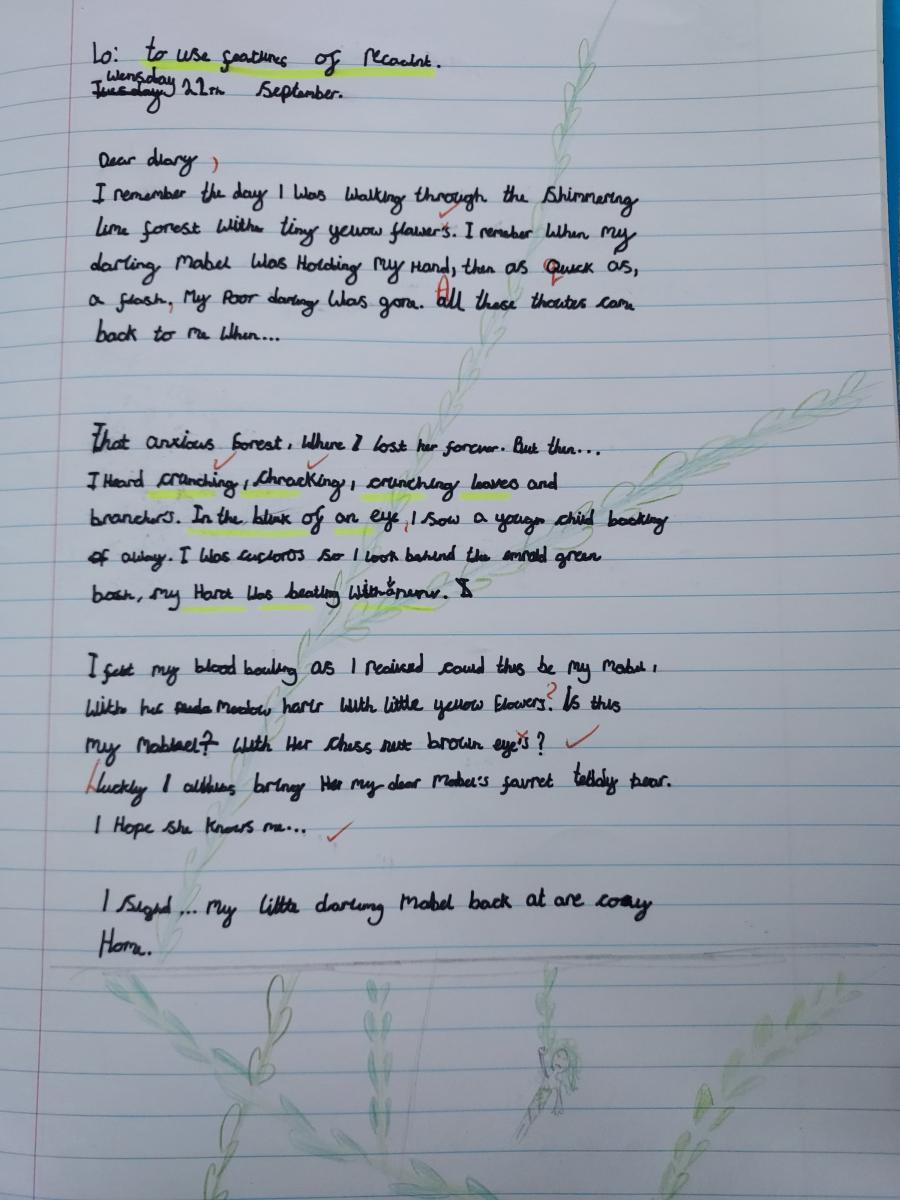 Lo: to use features of Recount.
Wensday
Tuesday 22th September.
Dear diary,
I remember the day I Was Walking through the Shimmering
lime forest withe tiny yellow flawer's. I remeber When my
darling Mabel Was Holding My Hand, then as Quick as,
a flash, My Poor darling Was gone. All these thoutes came
back to me When...
That anxious forest, Where I lost her forever. But then...
I Heard crunching, chracking, crunching leaves and
branchers. In the blink of an eye, I sow a yougn child backing
of away. I Was so I look behind the emrald green
bosh, my Hart Was beating With
I felt my blood bouling as I realised could this be my Mabel,
With her Meadow hairr With little yellow flowers? Is this
my Mabel? With Her chess nut brown eye's?
Luckly I bring Her my dear Mabel's favret teddy bear.
I Hope she knows me...
I sighd... my little darling Mabel back at are cosy
Home.